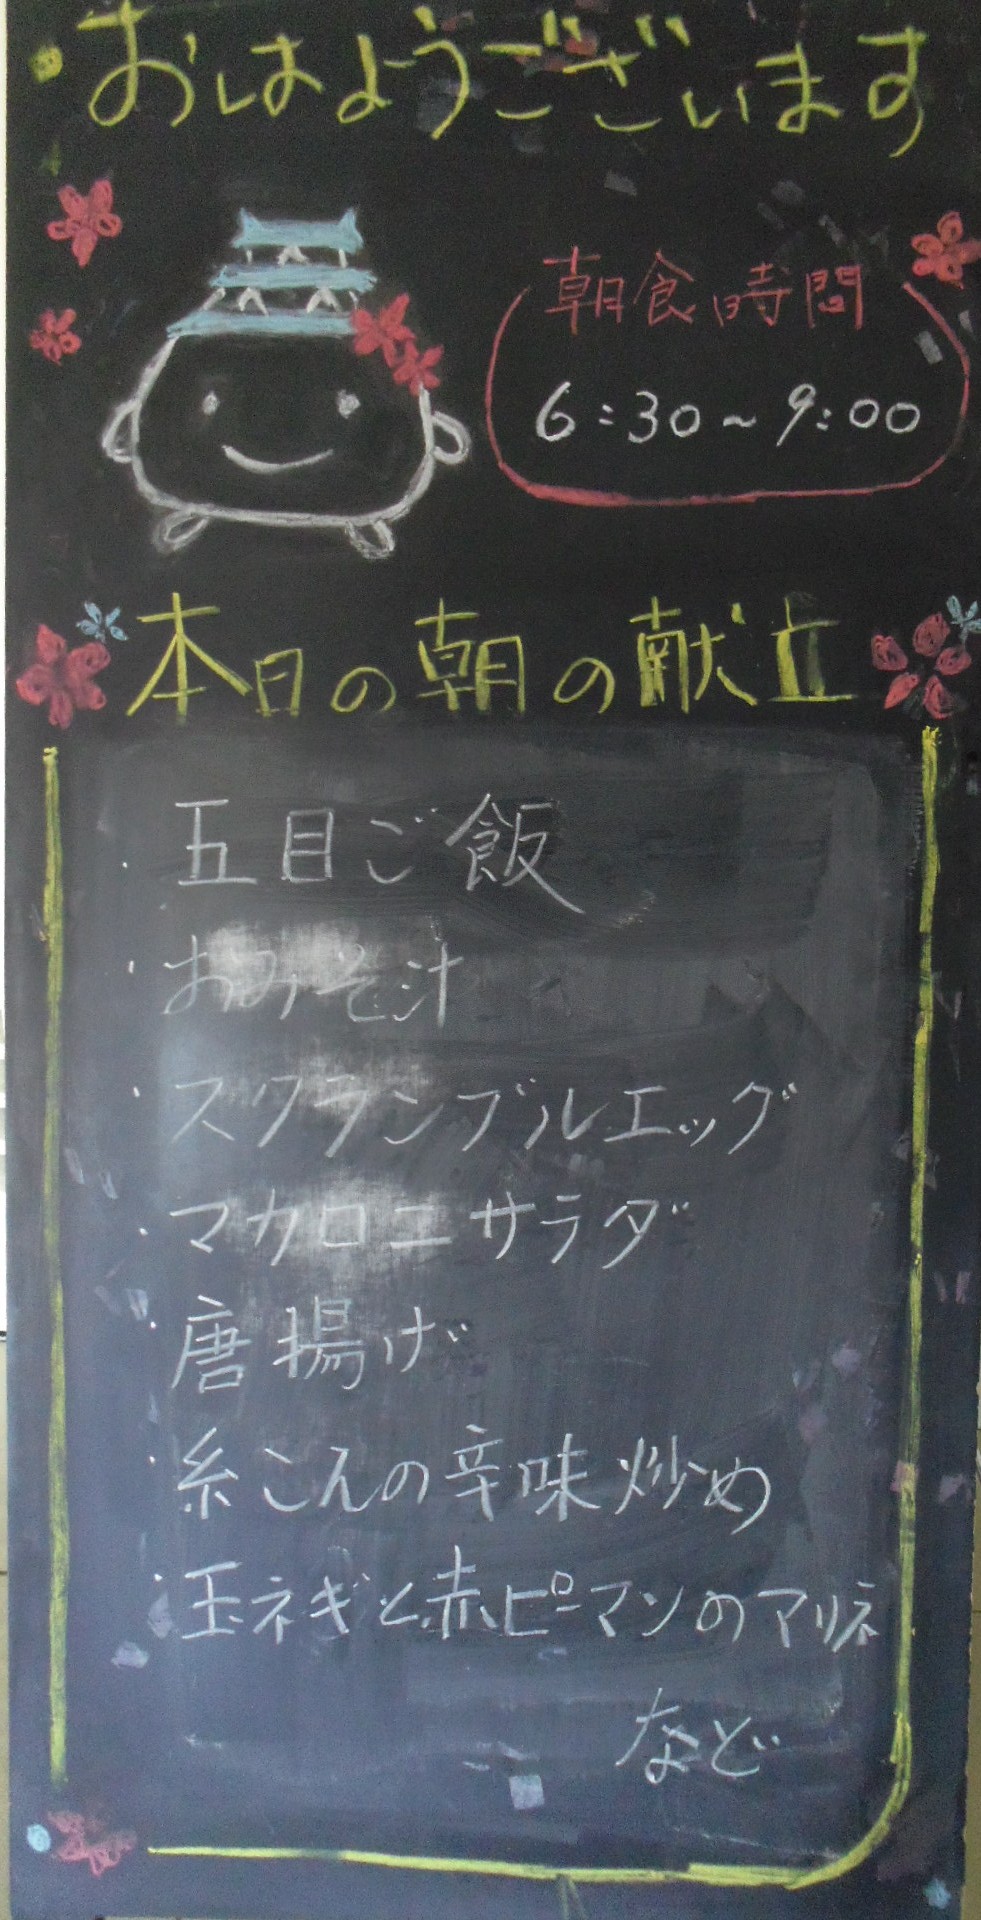 おはようございます
朝食時間
6:30~9:00
本日の朝の献立
・五目ご飯
・おみそ汁
・スクランブルエッグ
・マカロニサラダ
・唐揚げ
・糸こんの辛味炒め
・玉ネギと赤ピーマンのマリネ
など